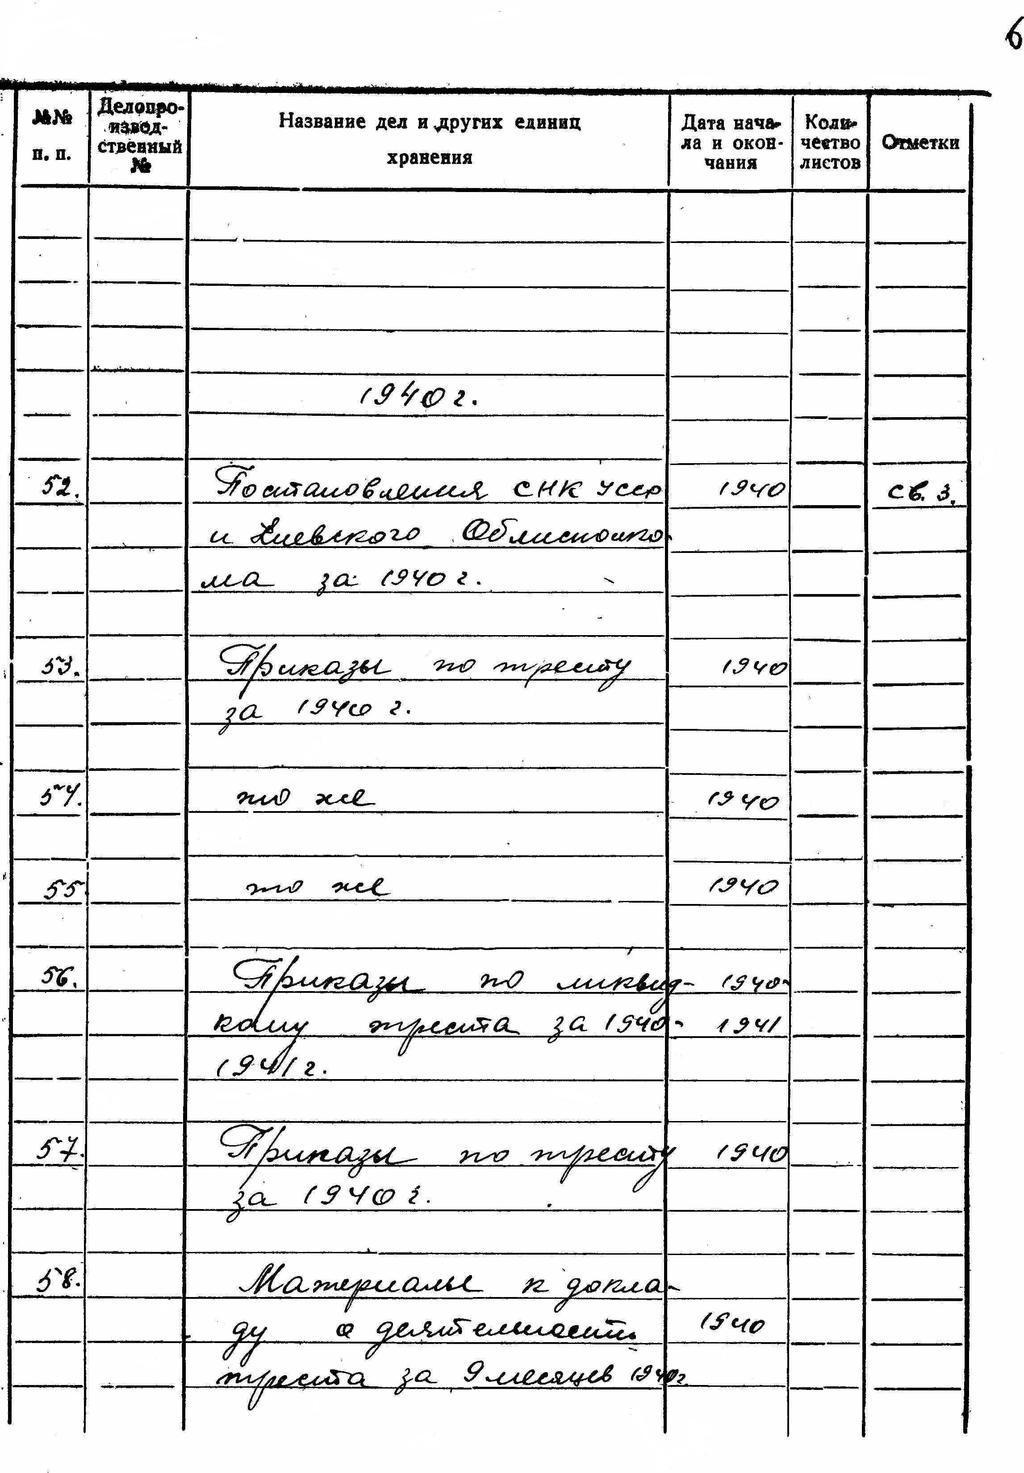 6
№№ п. п. Делопроизводственный № Название дел и других единиц хранения Дата начала и окончания Количество листов Отметки
1940 г.
52. Постановления СНК УССР 1940 св. 3.
и Киевского Облисполко-
ма за 1940 г.
53. Приказы по тресту 1940
за 1940 г.
54. то же 1940
55 то же 1940
56. Приказы по ликвид- 1940-
кому треста за 1940- 1941
1941 г.
57. Приказы по тресту 1940
за 1940 г.
58. Материалы к докла-
ду о деятельности 1940
треста за 9 месяцев 1940 г.